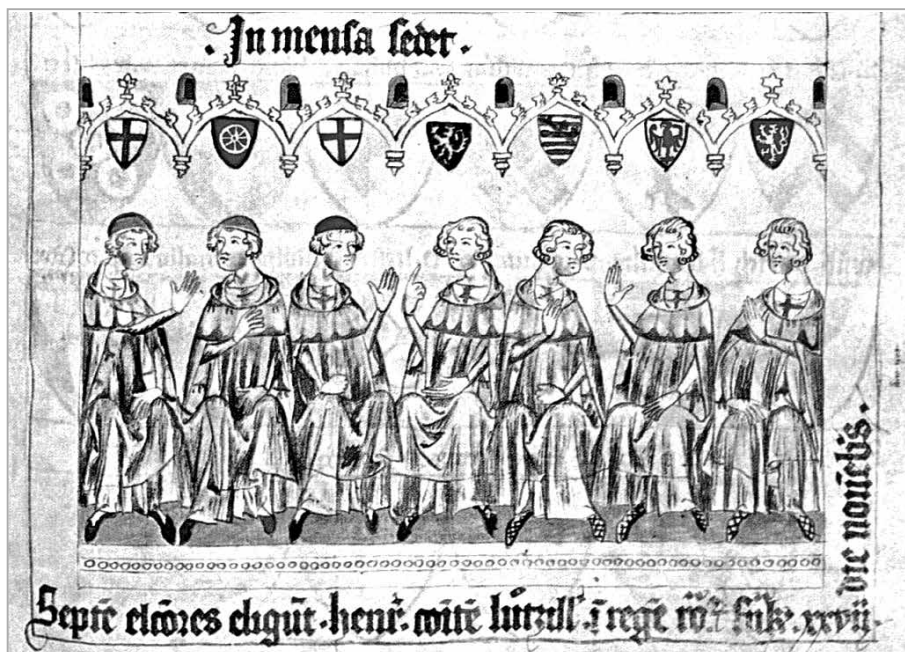 . In mensa sedet .
Septē elcōres eligūt . henr̄ . coītē lutzill' . ī regē rō . ī frnk . xxvii .
die nouēbis .